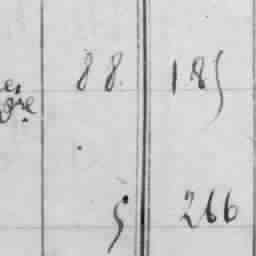 88. 185
5 266